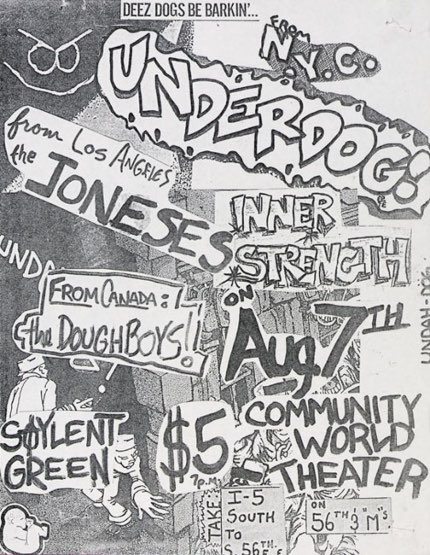 DEEZ DOGS BE BARKIN'...
FROM
N.Y.C.
UNDERDOG!
from Los Angeles
the JONESES
INNER
STRENGTH
UND
FROM CANADA:
the DOUGHBOYS!!
ON
Aug, 7TH
UNDAH-DOG
SOYLENT
GREEN
$5
7p.m.
COMMUNITY
WORLD
THEATER
TAKE
I-5
SOUTH
TO
S. 56TH.
ON
56TH & "M" S.